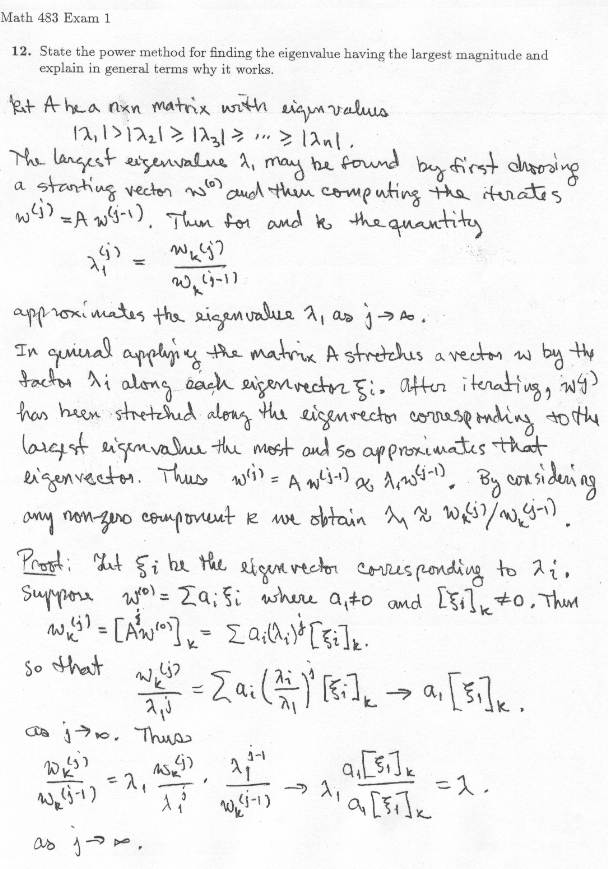 Math 483 Exam 1
12. State the power method for finding the eigenvalue having the largest magnitude and
explain in general terms why it works.
Let A be a nxn matrix with eigenvalues
|λ₁| > |λ₂| ≥ |λ₃| ≥ ... ≥ |λn|.
The largest eigenvalue λ₁ may be found by first choosing
a starting vector w⁽⁰⁾ and then computing the iterates
w⁽ʲ⁾ = A w⁽ʲ⁻¹⁾. Then for and k the quantity
λ₁⁽ʲ⁾ = wₖ⁽ʲ⁾ / wₖ⁽ʲ⁻¹⁾
approximates the eigenvalue λ₁ as j → ∞.
In general applying the matrix A stretches a vector w by the
factor λi along each eigenvector ξi. After iterating, w⁽ʲ⁾
has been stretched along the eigenvector corresponding to the
largest eigenvalue the most and so approximates that
eigenvector. Thus w⁽ʲ⁾ = A w⁽ʲ⁻¹⁾ ≈ λ₁w⁽ʲ⁻¹⁾. By considering
any non-zero component k we obtain λ₁ ≈ wₖ⁽ʲ⁾/wₖ⁽ʲ⁻¹⁾.
Proof: Let ξi be the eigenvector corresponding to λi.
Suppose w⁽⁰⁾ = Σaiξi where a₁≠0 and [ξ₁]ₖ ≠ 0. Then
wₖ⁽ʲ⁾ = [Aʲw⁽⁰⁾]ₖ = Σ ai(λi)ʲ[ξi]ₖ.
so that wₖ⁽ʲ⁾ / λ₁ʲ = Σai(λi/λ₁)ʲ[ξi]ₖ → a₁[ξ₁]ₖ.
as j → ∞. Thus
wₖ⁽ʲ⁾ / wₖ⁽ʲ⁻¹⁾ = λ₁ wₖ⁽ʲ⁾ / λ₁ʲ · λ₁ʲ⁻¹ / wₖ⁽ʲ⁻¹⁾ → λ₁ a₁[ξ₁]ₖ / a₁[ξ₁]ₖ = λ.
as j → ∞.